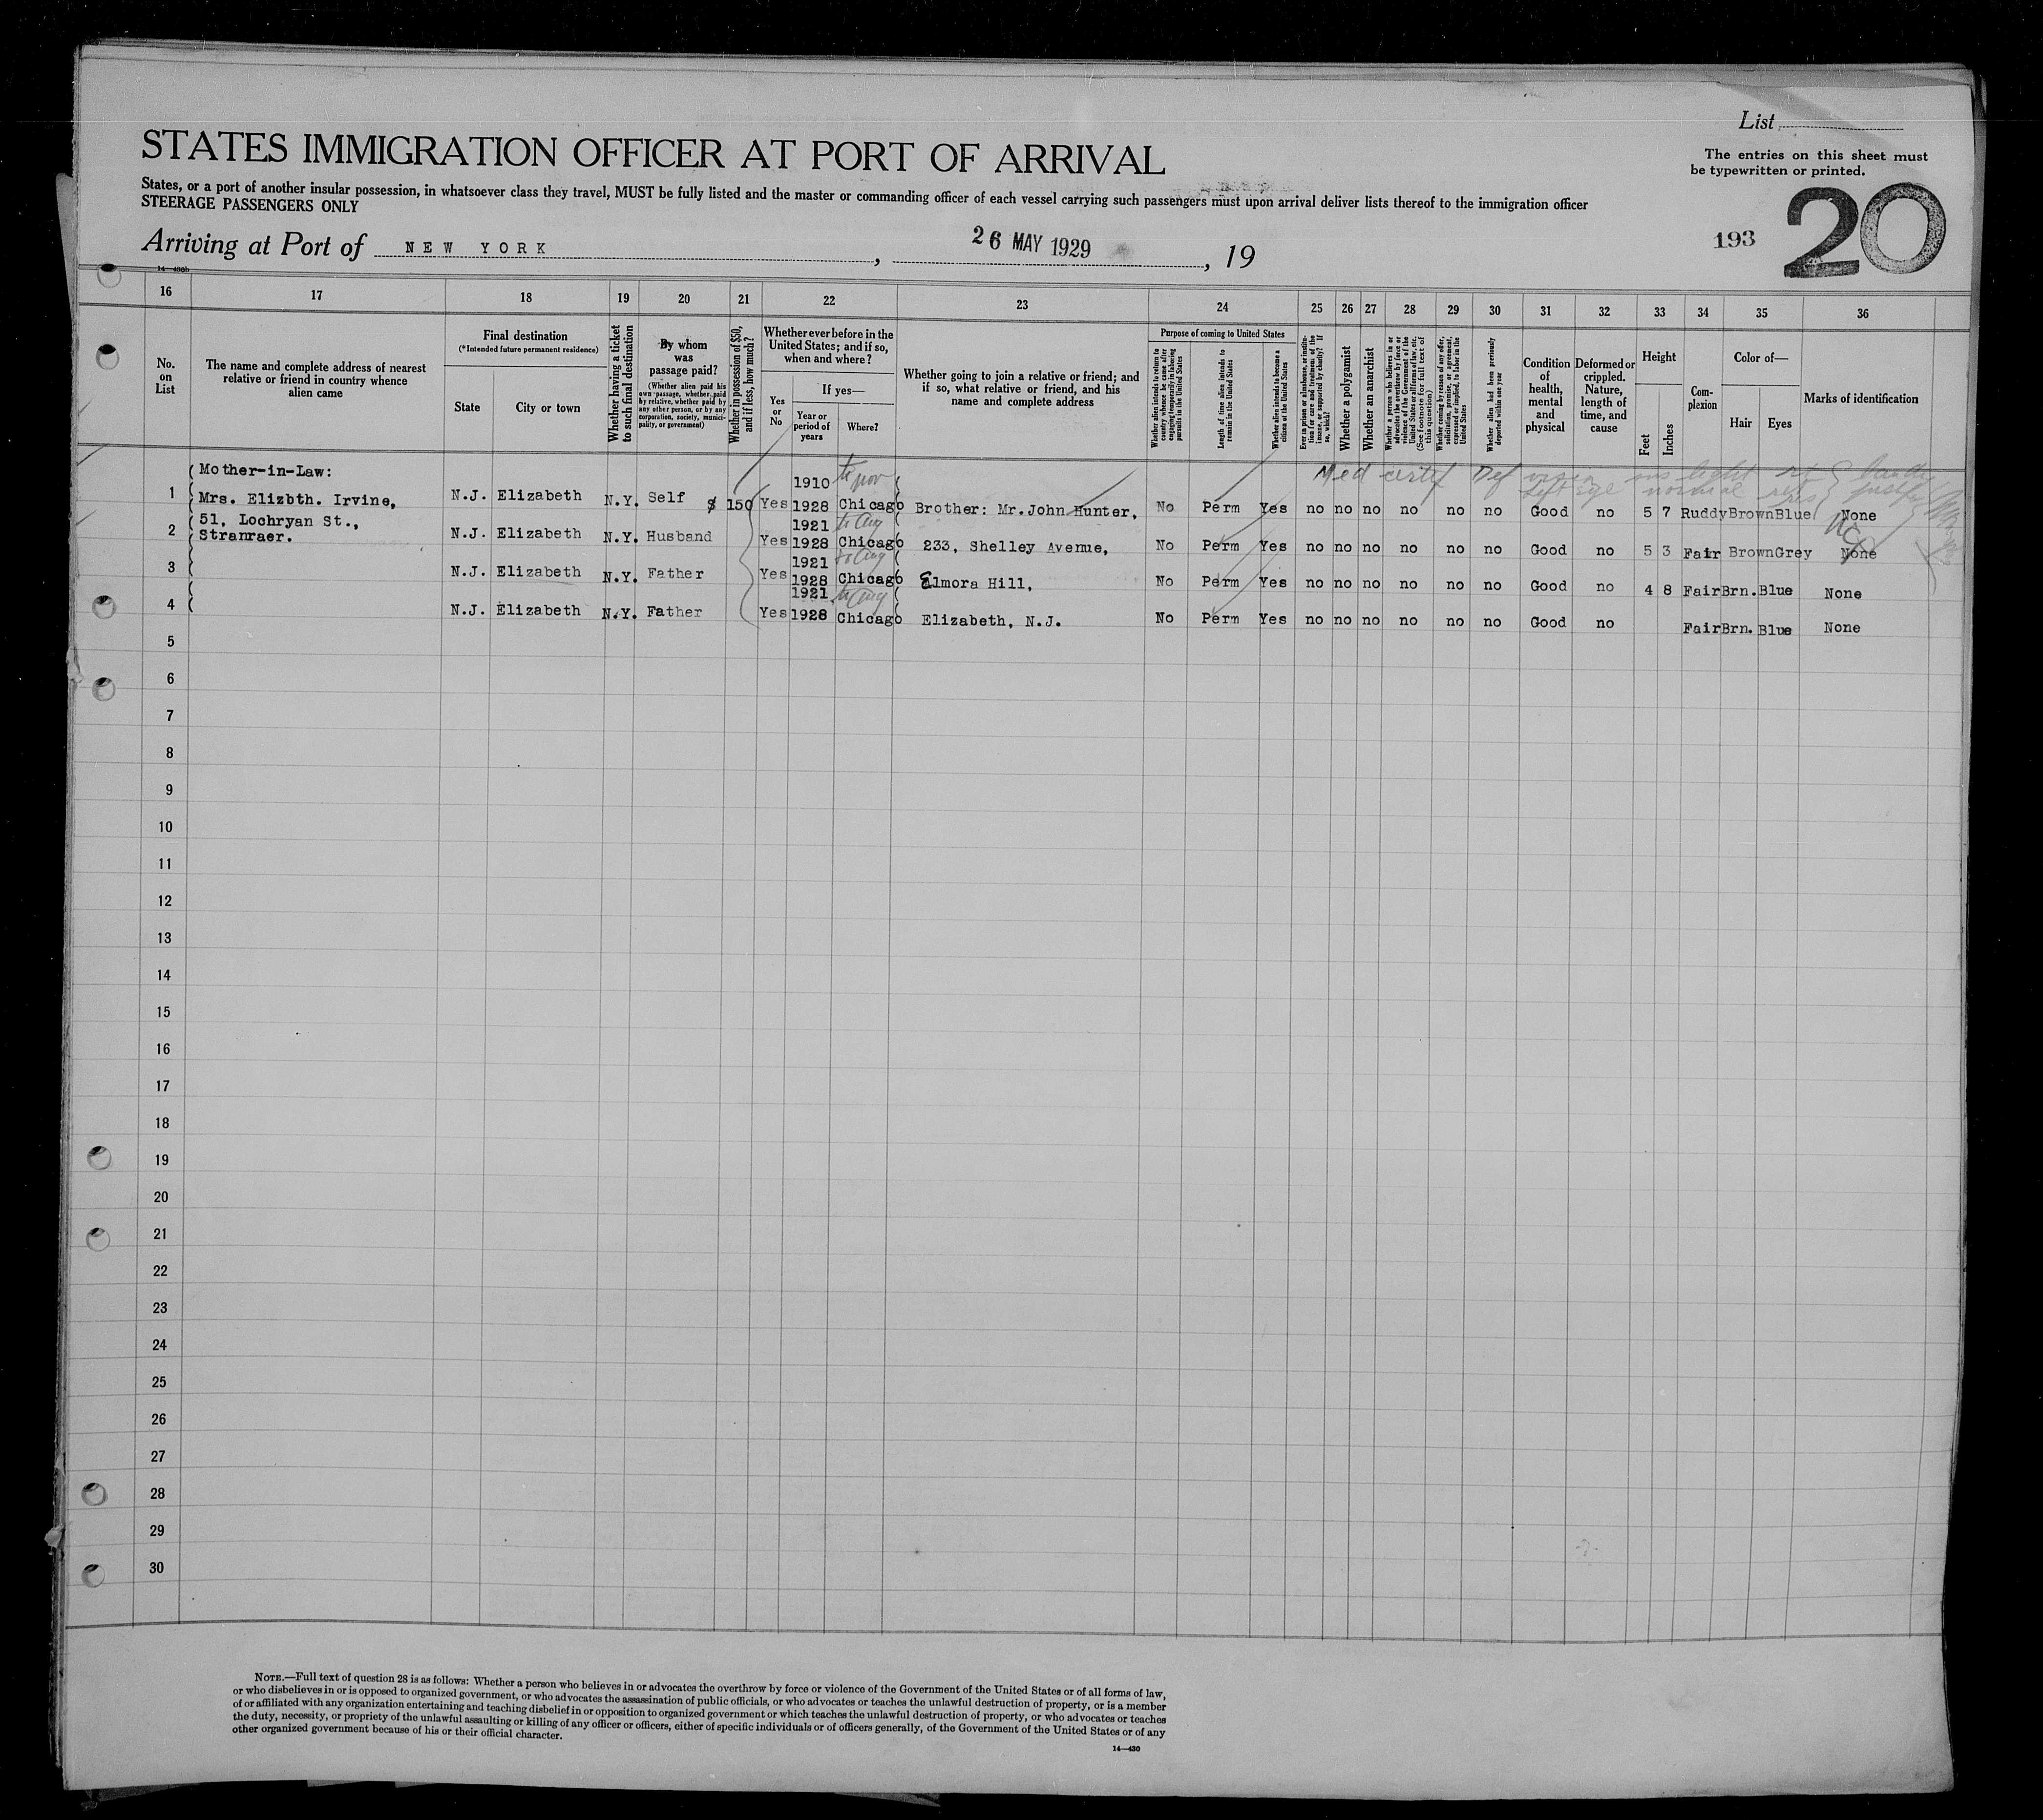 List
The entries on this sheet must
be typewritten or printed.
STATES IMMIGRATION OFFICER AT PORT OF ARRIVAL
States, or a port of another insular possession, in whatsoever class they travel, MUST be fully listed and the master or commanding officer of each vessel carrying such passengers must upon arrival deliver lists thereof to the immigration officer
STEERAGE PASSENGERS ONLY
193 20
Arriving at Port of NEW YORK, 26 MAY 1929, 19
14—430b
16 17 18 19 20 21 22 23 24 25 26 27 28 29 30 31 32 33 34 35 36
No.
on
List
The name and complete address of nearest
relative or friend in country whence
alien came
Final destination
(*Intended future permanent residence)
State
City or town
Whether having a ticket
to such final destination
By whom
was
passage paid?
(Whether alien paid his
own passage, whether paid
by relative, whether paid by
any other person, or by any
corporation, society, munici-
pality, or government)
Whether in possession of $50,
and if less, how much?
Whether ever before in the
United States; and if so,
when and where?
Yes
or
No
If yes—
Year or
period of
years
Where?
Whether going to join a relative or friend; and
if so, what relative or friend, and his
name and complete address
Purpose of coming to United States
Whether alien intends to return to
country whence he came after
engaging temporarily in laboring
pursuits in the United States
Length of time alien intends to
remain in the United States
Whether alien intends to become a
citizen of the United States
Ever in prison or almshouse, or institu-
tion for care and treatment of the
insane, or supported by charity? If
so, which?
Whether a polygamist
Whether an anarchist
Whether a person who believes in or
advocates the overthrow by force or
violence of the Government of the
United States or all forms of law, etc.
(See footnote for full text of
this question)
Whether coming by reason of any offer,
solicitation, promise, or agreement,
expressed or implied, to labor in the
United States
Whether alien had been previously
deported within one year
Condition
of
health,
mental
and
physical
Deformed or
crippled.
Nature,
length of
time, and
cause
Height
Feet
Inches
Com-
plexion
Color of—
Hair
Eyes
Marks of identification
Med certif Def vision
left eye normal
Mother-in-Law:
1910
1 Mrs. Elizbth. Irvine, N.J. Elizabeth N.Y. Self $ 150 Yes 1928 Chicago Brother: Mr.John Hunter, No Perm Yes no no no no no no Good no 5 7 Ruddy Brown Blue None
51, Lochryan St., 1921
2 Stranraer. N.J. Elizabeth N.Y. Husband Yes 1928 Chicago 233, Shelley Avenue, No Perm Yes no no no no no no Good no 5 3 Fair Brown Grey None
1921
3 N.J. Elizabeth N.Y. Father Yes 1928 Chicago Elmora Hill, No Perm Yes no no no no no no Good no 4 8 Fair Brn. Blue None
1921
4 N.J. Elizabeth N.Y. Father Yes 1928 Chicago Elizabeth, N.J. No Perm Yes no no no no no no Good no Fair Brn. Blue None
5
6
7
8
9
10
11
12
13
14
15
16
17
18
19
20
21
22
23
24
25
26
27
28
29
30
NOTE.—Full text of question 28 is as follows: Whether a person who believes in or advocates the overthrow by force or violence of the Government of the United States or of all forms of law,
or who disbelieves in or is opposed to organized government, or who advocates the assassination of public officials, or who advocates or teaches the unlawful destruction of property, or is a member
of or affiliated with any organization entertaining and teaching disbelief in or opposition to organized government or which teaches the unlawful destruction of property, or who advocates or teaches
the duty, necessity, or propriety of the unlawful assaulting or killing of any officer or officers, either of specific individuals or of officers generally, of the Government of the United States or of any
other organized government because of his or their official character.
14—430